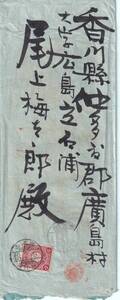 香川縣仲多度郡廣島村
大字広島立石浦
尾上梅吉郎殿